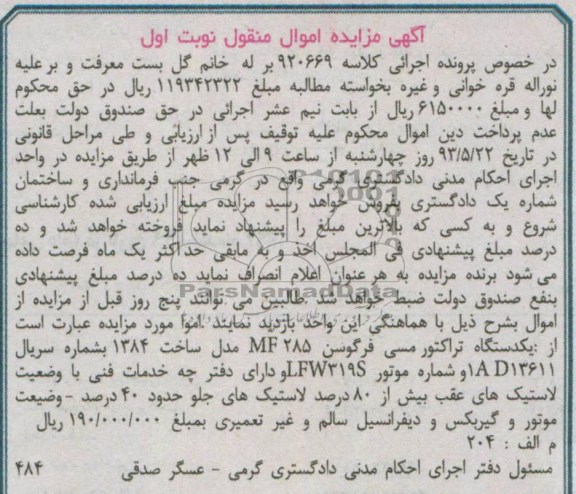 آگهی مزایده اموال منقول نوبت اول
در خصوص پرونده اجرائی کلاسه ۹۲۰۶۶۹ بر له خانم گل بست معرفت و بر علیه
نوراله قره خوانی و غیره بخواسته مطالبه مبلغ ۱۱۹۳۴۲۳۲۲ ریال در حق محکوم
لها و مبلغ ۶۱۵۰۰۰۰ ریال از بابت نیم عشر اجرائی در حق صندوق دولت بعلت
عدم پرداخت دین اموال محکوم علیه توقیف پس از ارزیابی و طی مراحل قانونی
در تاریخ ۹۳/۵/۲۲ روز چهارشنبه از ساعت ۹ الی ۱۲ ظهر از طریق مزایده در واحد
اجرای احکام مدنی دادگستری گرمی واقع در گرمی جنب فرمانداری و ساختمان
شماره یک دادگستری بفروش خواهد رسید مزایده مبلغ ارزیابی شده کارشناسی
شروع و به کسی که بالاترین مبلغ را پیشنهاد نماید فروخته خواهد شد و ده
درصد مبلغ پیشنهادی فی المجلس اخذ و به مابقی حداکثر یک ماه فرصت داده
می شود برنده مزایده به هر عنوان اعلام انصراف نماید ده درصد مبلغ پیشنهادی
بنفع صندوق دولت ضبط خواهد شد .طالبین می توانند پنج روز قبل از مزایده از
ParsNamadData
اموال بشرح ذیل با هماهنگی این واحد بازدید نمایند .اموا مورد مزایده عبارت است
از :یکدستگاه تراکتور مسی فرگوسن MF ۲۸۵ مدل ساخت ۱۳۸۴ بشماره سریال
۱A D۱۳۶۱۱ و شماره موتور LFW۳۱۹S و دارای دفتر چه خدمات فنی با وضعیت
لاستیک های عقب بیش از ۸۰ درصد لاستیک های جلو حدود ۴۰ درصد - وضیعت
موتور و گیربکس و دیفرانسیل سالم و غیر تعمیری بمبلغ ۱۹۰/۰۰۰/۰۰۰ ریال
م الف : ۲۰۴
مسئول دفتر اجرای احکام مدنی دادگستری گرمی - عسگر صدقی ۴۸۴